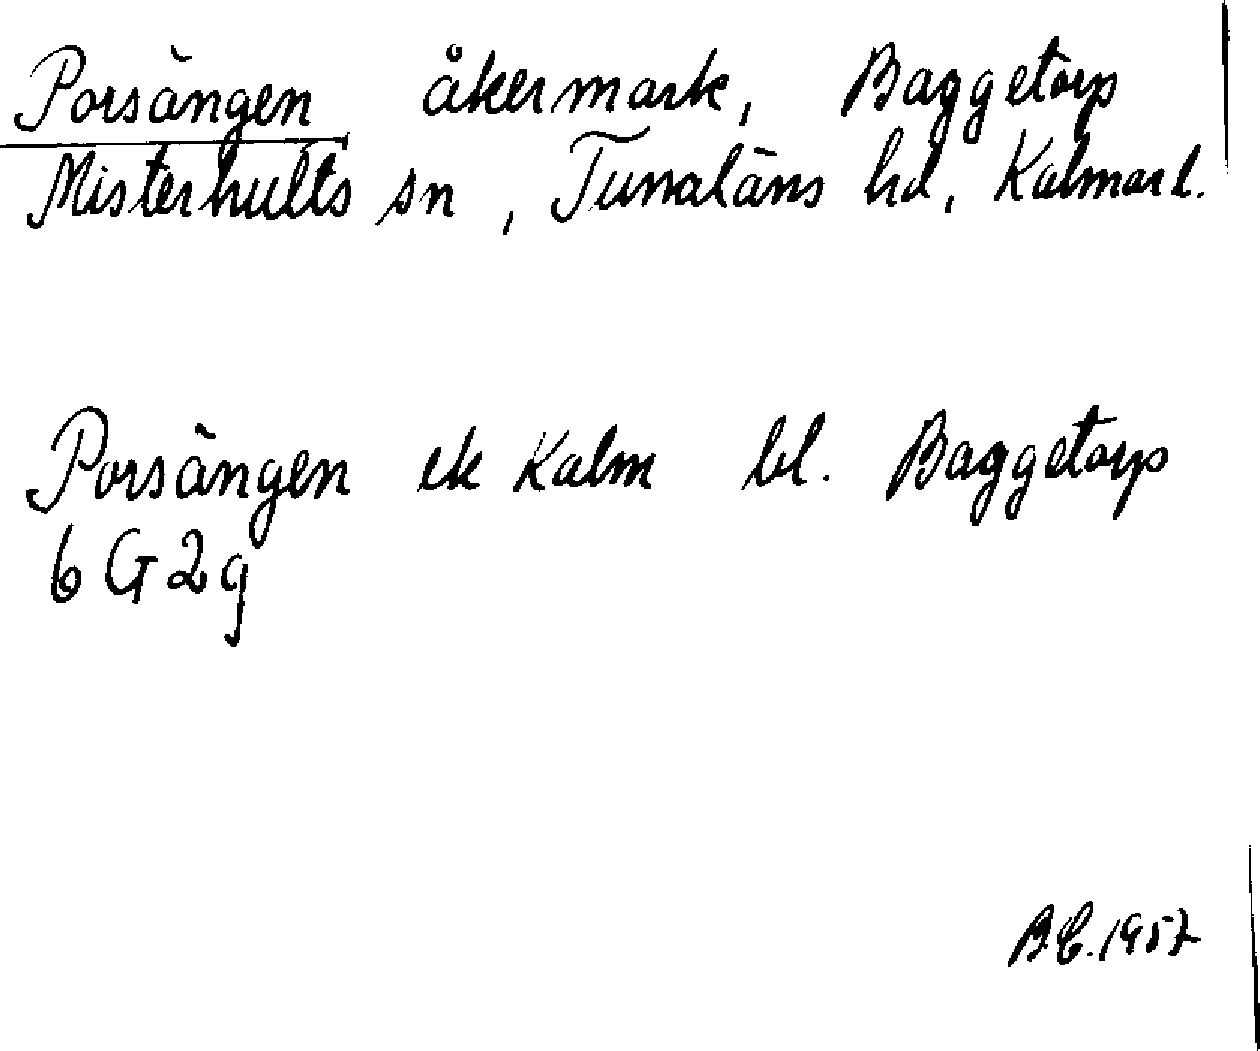 Porsängen åkermark, Baggetorp
Misterhults sn, Tunaläns hd, Kalmar l.
Porsängen ek Kalm bl. Baggetorp
6 G 2 g
B.E. 1957